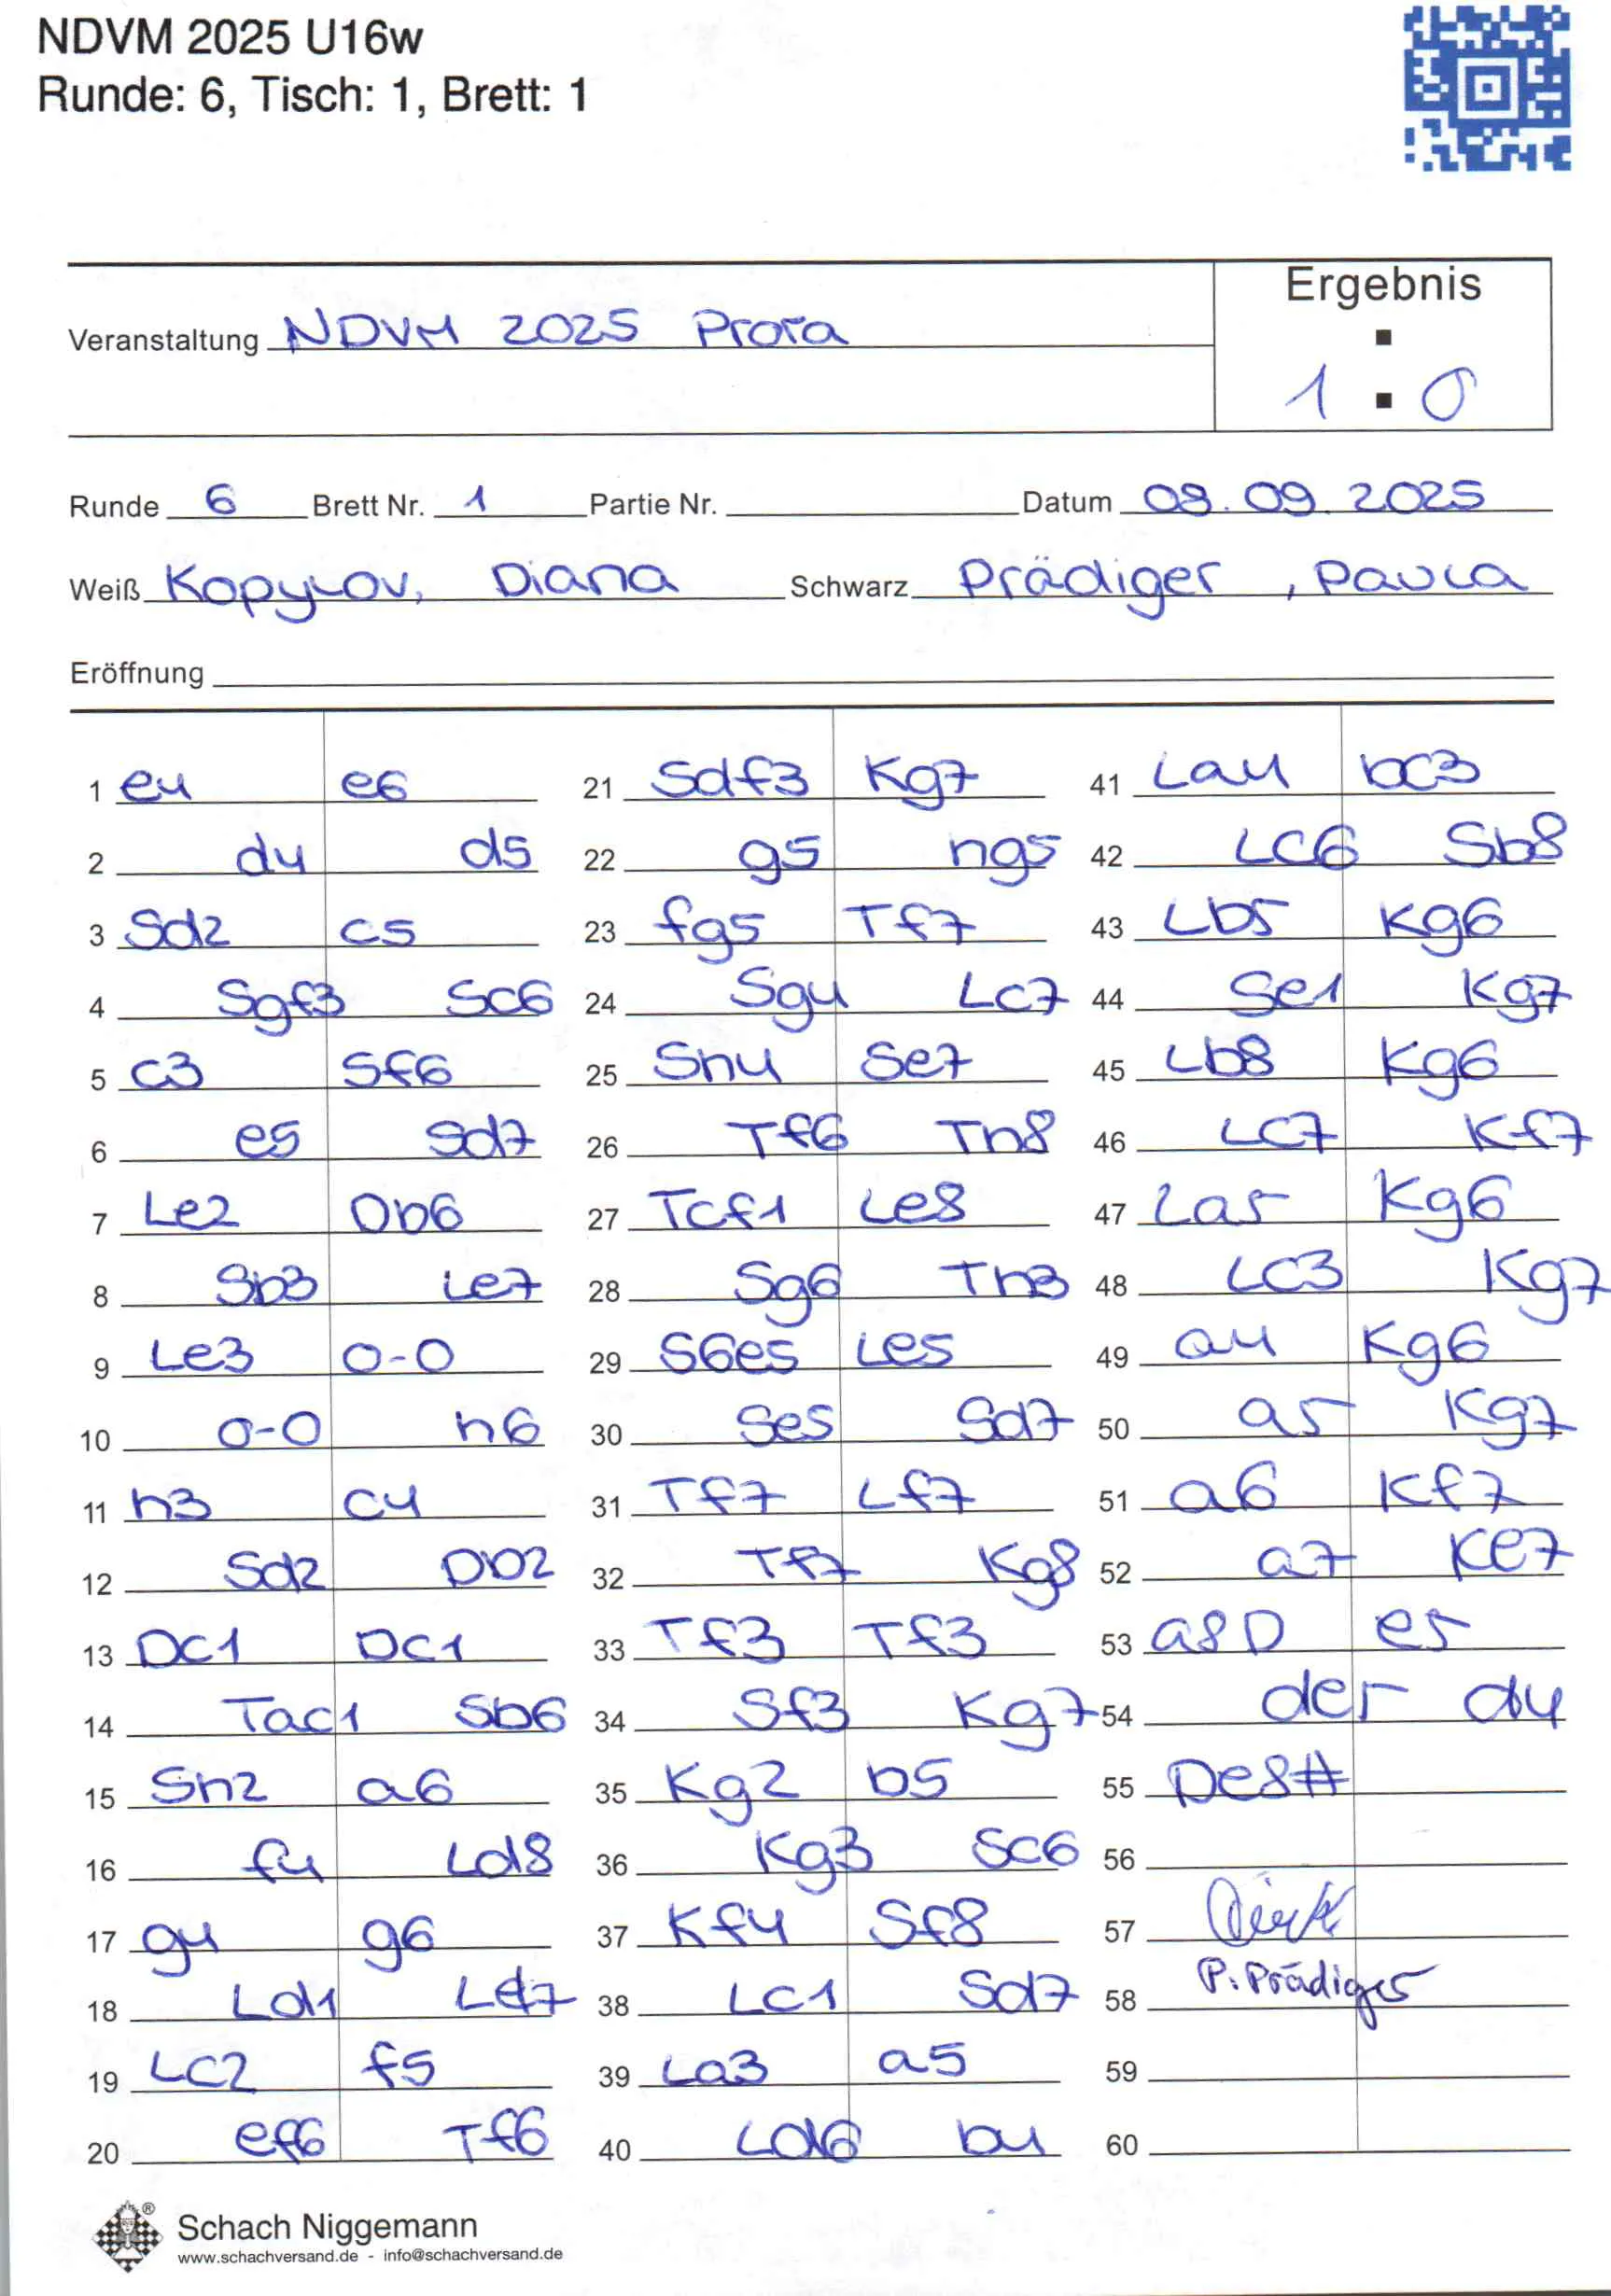 NDVM 2025 U16w
Runde: 6, Tisch: 1, Brett: 1
Ergebnis
Veranstaltung NDVM 2025 Prora
1 : 0
Runde 6 Brett Nr. 1 Partie Nr. Datum 08.09.2025
Weiß Kopylov, Diana Schwarz Prädiger, Paula
Eröffnung
1 e4 e6
2 d4 d5
3 Sd2 c5
4 Sgf3 Sc6
5 c3 Sf6
6 e5 Sd7
7 Le2 Db6
8 Sb3 Le7
9 Le3 0-0
10 0-0 h6
11 h3 c4
12 Sd2 Db2
13 Dc1 Dc1
14 Tac1 Sb6
15 Sh2 a6
16 f4 Ld8
17 g4 g6
18 Ld1 Ld7
19 Lc2 f5
20 ef6 Tf6
21 Sdf3 Kg7
22 g5 hg5
23 fg5 Tf7
24 Sg4 Lc7
25 Sh4 Se7
26 Tf6 Th8
27 Tcf1 Le8
28 Sg6 Th3
29 S6e5 Le5
30 Se5 Sd7
31 Tf7 Lf7
32 Tf7 Kg8
33 Tf3 Tf3
34 Sf3 Kg7
35 Kg2 b5
36 Kg3 Sc6
37 Kf4 Sf8
38 Lc1 Sd7
39 La3 a5
40 Ld6 b4
41 La4 bc3
42 Lc6 Sb8
43 Lb5 Kg6
44 Se1 Kg7
45 Lb8 Kg6
46 Lc7 Kf7
47 La5 Kg6
48 Lc3 Kg7
49 a4 Kg6
50 a5 Kg7
51 a6 Kf7
52 a7 Ke7
53 a8D e5
54 de5 d4
55 De8#
56
57
58 P. Prädiger
59
60
Schach Niggemann
www.schachversand.de - info@schachversand.de